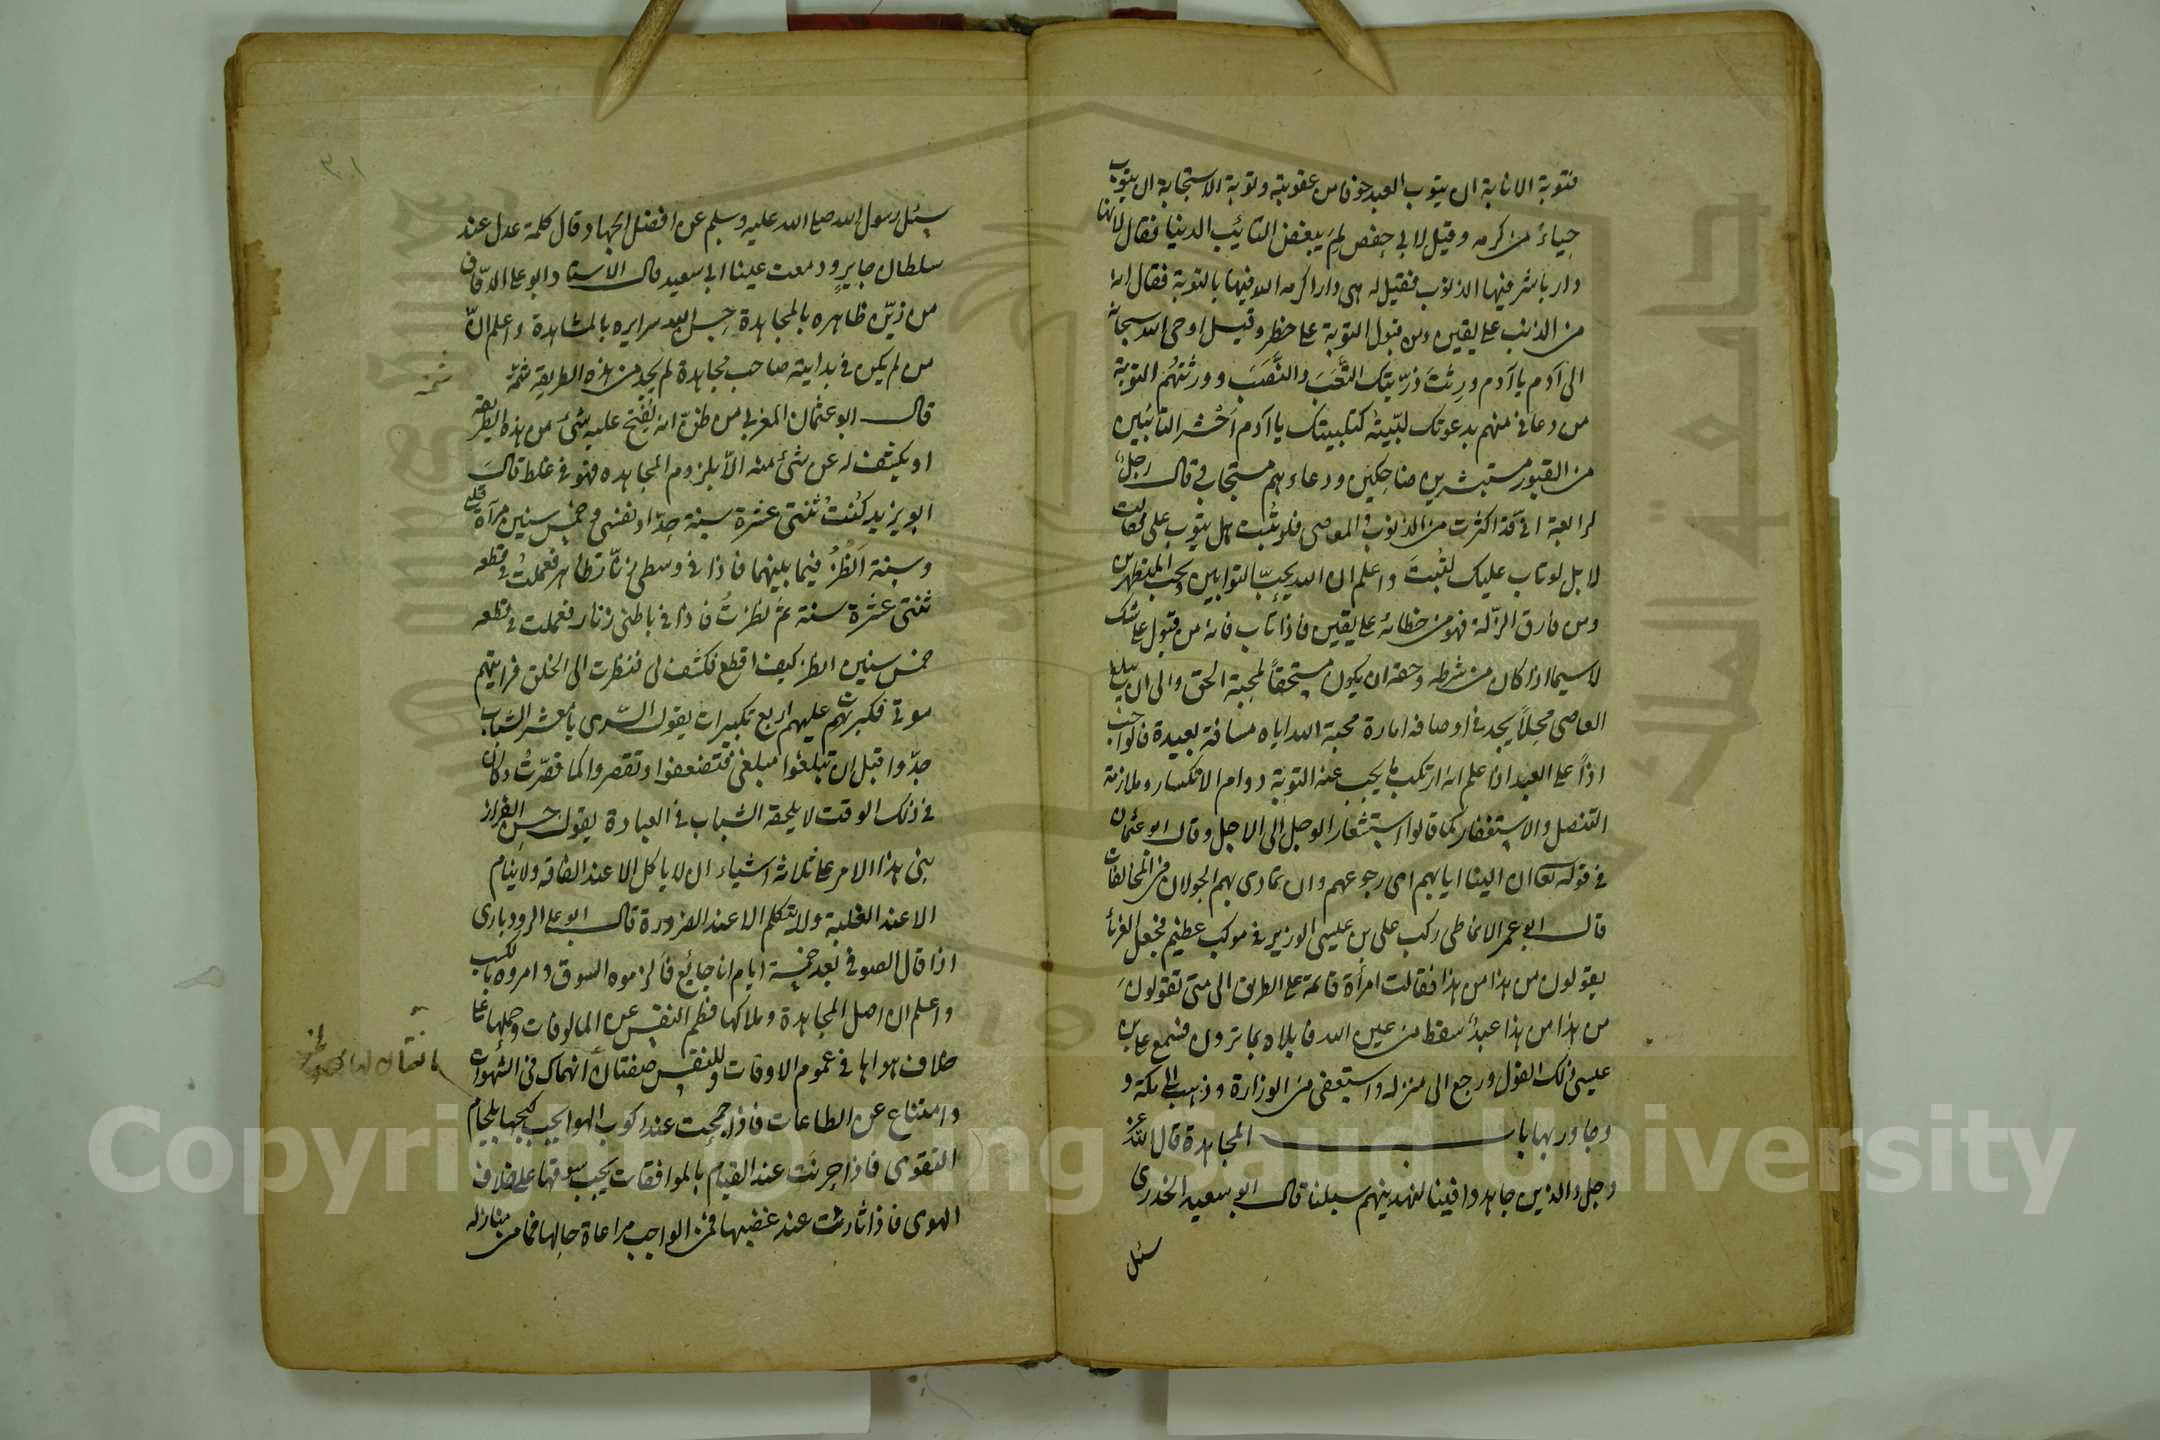 فتوبة الانابة ان يتوب العبد خوفا من عقوبته وتوبة الاستجابة ان يتوب
حياءً من كرمه وقيل لابي حفص لِمَ يبغض التائب الدنيا فقال لانها
دار باشر فيها الذنوب فقيل له هي دار اكرمه الله فيها بالتوبة فقال انه
من الذنب على يقين ومن قبول التوبة على خطر وقيل اوحى الله سبحانه
الى آدم يا آدم ورثت ذريتك التعَبَ والنَّصَبَ وورثتهم التوبة
من دعاني منهم بدعوتك لبّيته كتلبيتك يا آدم اَحْشُر التائبين
من القبور مستبشرين ضاحكين ودعاءهم مستجاب قال رجلٌ
لرابعة اني قد اكثرت من الذنوب والمعاصى فلو تُبْت هل يتوب على فقالت
لا بل لو تاب عليك لتُبتَ واعلم ان الله يحبّ التوابين ويحب المتطهرين
ومن قارف الزلة فهو من خطائه على يقين فاذا تاب فانه من قبول على شك
لا سيما اذا كان من شرطه وحقه ان يكون مستحقاً لمحبة الحق والى ان يبلغ
العاصى محلاً يجد في اوصافه امارة محبة الله اياه مسافة بعيدة فالواجب
اذاً على العبد اذا علم انه ارتكب ما يجب عنه التوبة دوام الانكسار وملازمة
التنصل والاستغفار كما قالوا استشعار الوجل الى الاجل وقال ابو عثمان
في قوله تعا ان الينا ايابهم اى رجوعهم وان تمادى بهم الجولان في المخالفات
قال ابو عمر الانماطى ركب على بن عيسى الوزير في موكب عظيم فجعل الغرباء
يقولون من هذا من هذا فقالت امرأة قائمة على الطريق الى متى تقولونَ
من هذا من هذا عبدٌ سقط من عين الله فابلاه بما ترون فسمع على بن
عيسى ذلك القول ورجع الى منزله واستعفى من الوزارة وذهب الى مكة و
وجاور بها باب المجاهدة قال الله عز
وجل والذين جاهدوا فينا لنهدينهم سبلنا قال ابو سعيد الخدرى
سئل
٣١
سئل رسول الله صلى الله عليه وسلم عن افضل الجهاد وقال كلمة عدل عند
سلطان جايرٍ ودمعت عينا ابى سعيد قال الاستاد ابو على الدقاق
من زيّن ظاهره بالمجاهدة حسن الله سرايره بالمشاهدة واعلم انّ
من لم يكن في بدايته صاحب مجاهدة لم يجد من هذه الطريقة شمّة
قال ابو عثمان المغربى من ظنّ انه يُفتح عليه شئ من هذه الطريقة
او يكشف له عن شئ منه الّا بلزوم المجاهده فهو في غلط قالَ
ابو يزيد كُنتُ ثنتى عشرة سنة حدّاد نفسى و خمس سنين مرآة قلبى
وسنة انظُرُ فيما بينهما فاذا في وسطى زنّار ظاهر فعملتُ في قطعه
ثنتى عشرة سنة ثم نظرتُ فاذا في باطنى زنار فعملت في قطعه
خمس سنين انظر كيف اقطع فكشف لى فنظرت الى الخلق فرايتهم
موتى فكبرت عليهم اربع تكبيرات يقول السّرى يا معشر الشباب
جدّوا قبل ان تبلغُوا مبلغى فتضعفوا وتقصروا كما قصّرتُ وكان
في ذلك الوقت لا يلحقه الشباب في العبادة يقول حسن القزاز
بنى هذا الامر على ثلاثة اشياء ان لا ياكل الا عند الفاقه ولا ينام
الا عند الغلبة ولا يتكلم الا عند الضرورة قال ابو على الرودبارى
اذا قال الصوفي بعد خمسة ايام انا جايع فالزموه السوق وامروه بالكسب
واعلم ان اصل المجاهدة وملاكها فطم النفس عن المالوفات وحملها على
خلاف هواها في عموم الاوقات وللنفس صفتان انهماك في الشهوات
وامتناع عن الطاعات فاذا جمحت عند ركوب الهوا يجب كبحها بلجام
التقوى فاذا حرنت عند القيام بالموافقات يجب سوقها على خلاف
الهوى فاذا ثارت عند غضبها فمن الواجب مراعاة حالها فما من منازلة